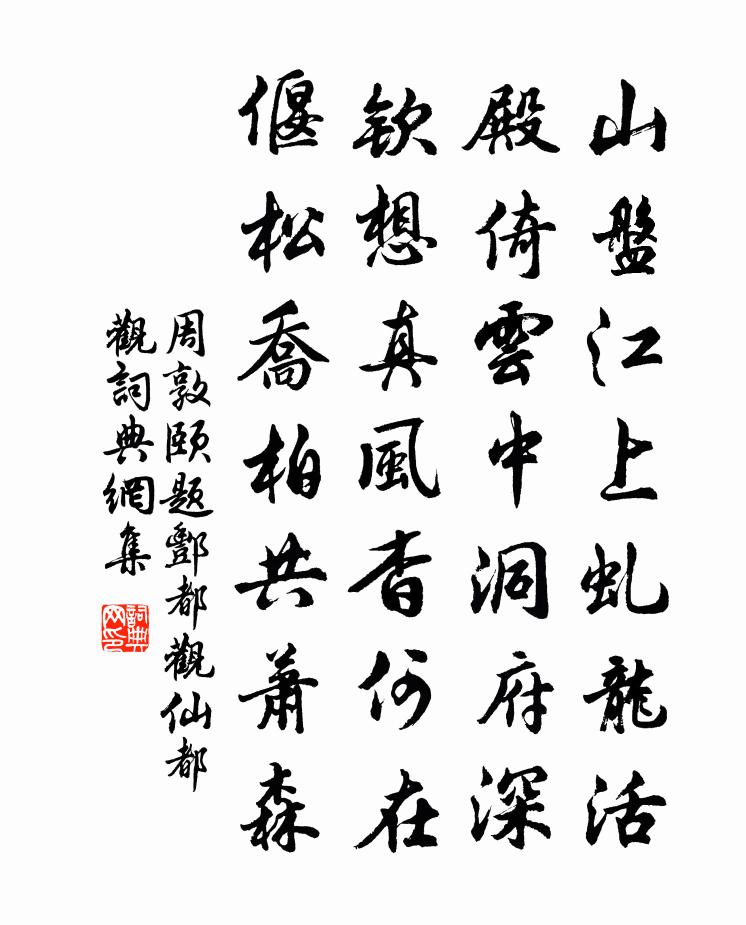 山盤江上虬龍活
殿倚雲中洞府深
欽想真風杳何在
偃松喬柏共蕭森
周敦頤題酆都觀仙都
觀詞典網集
詞典網印